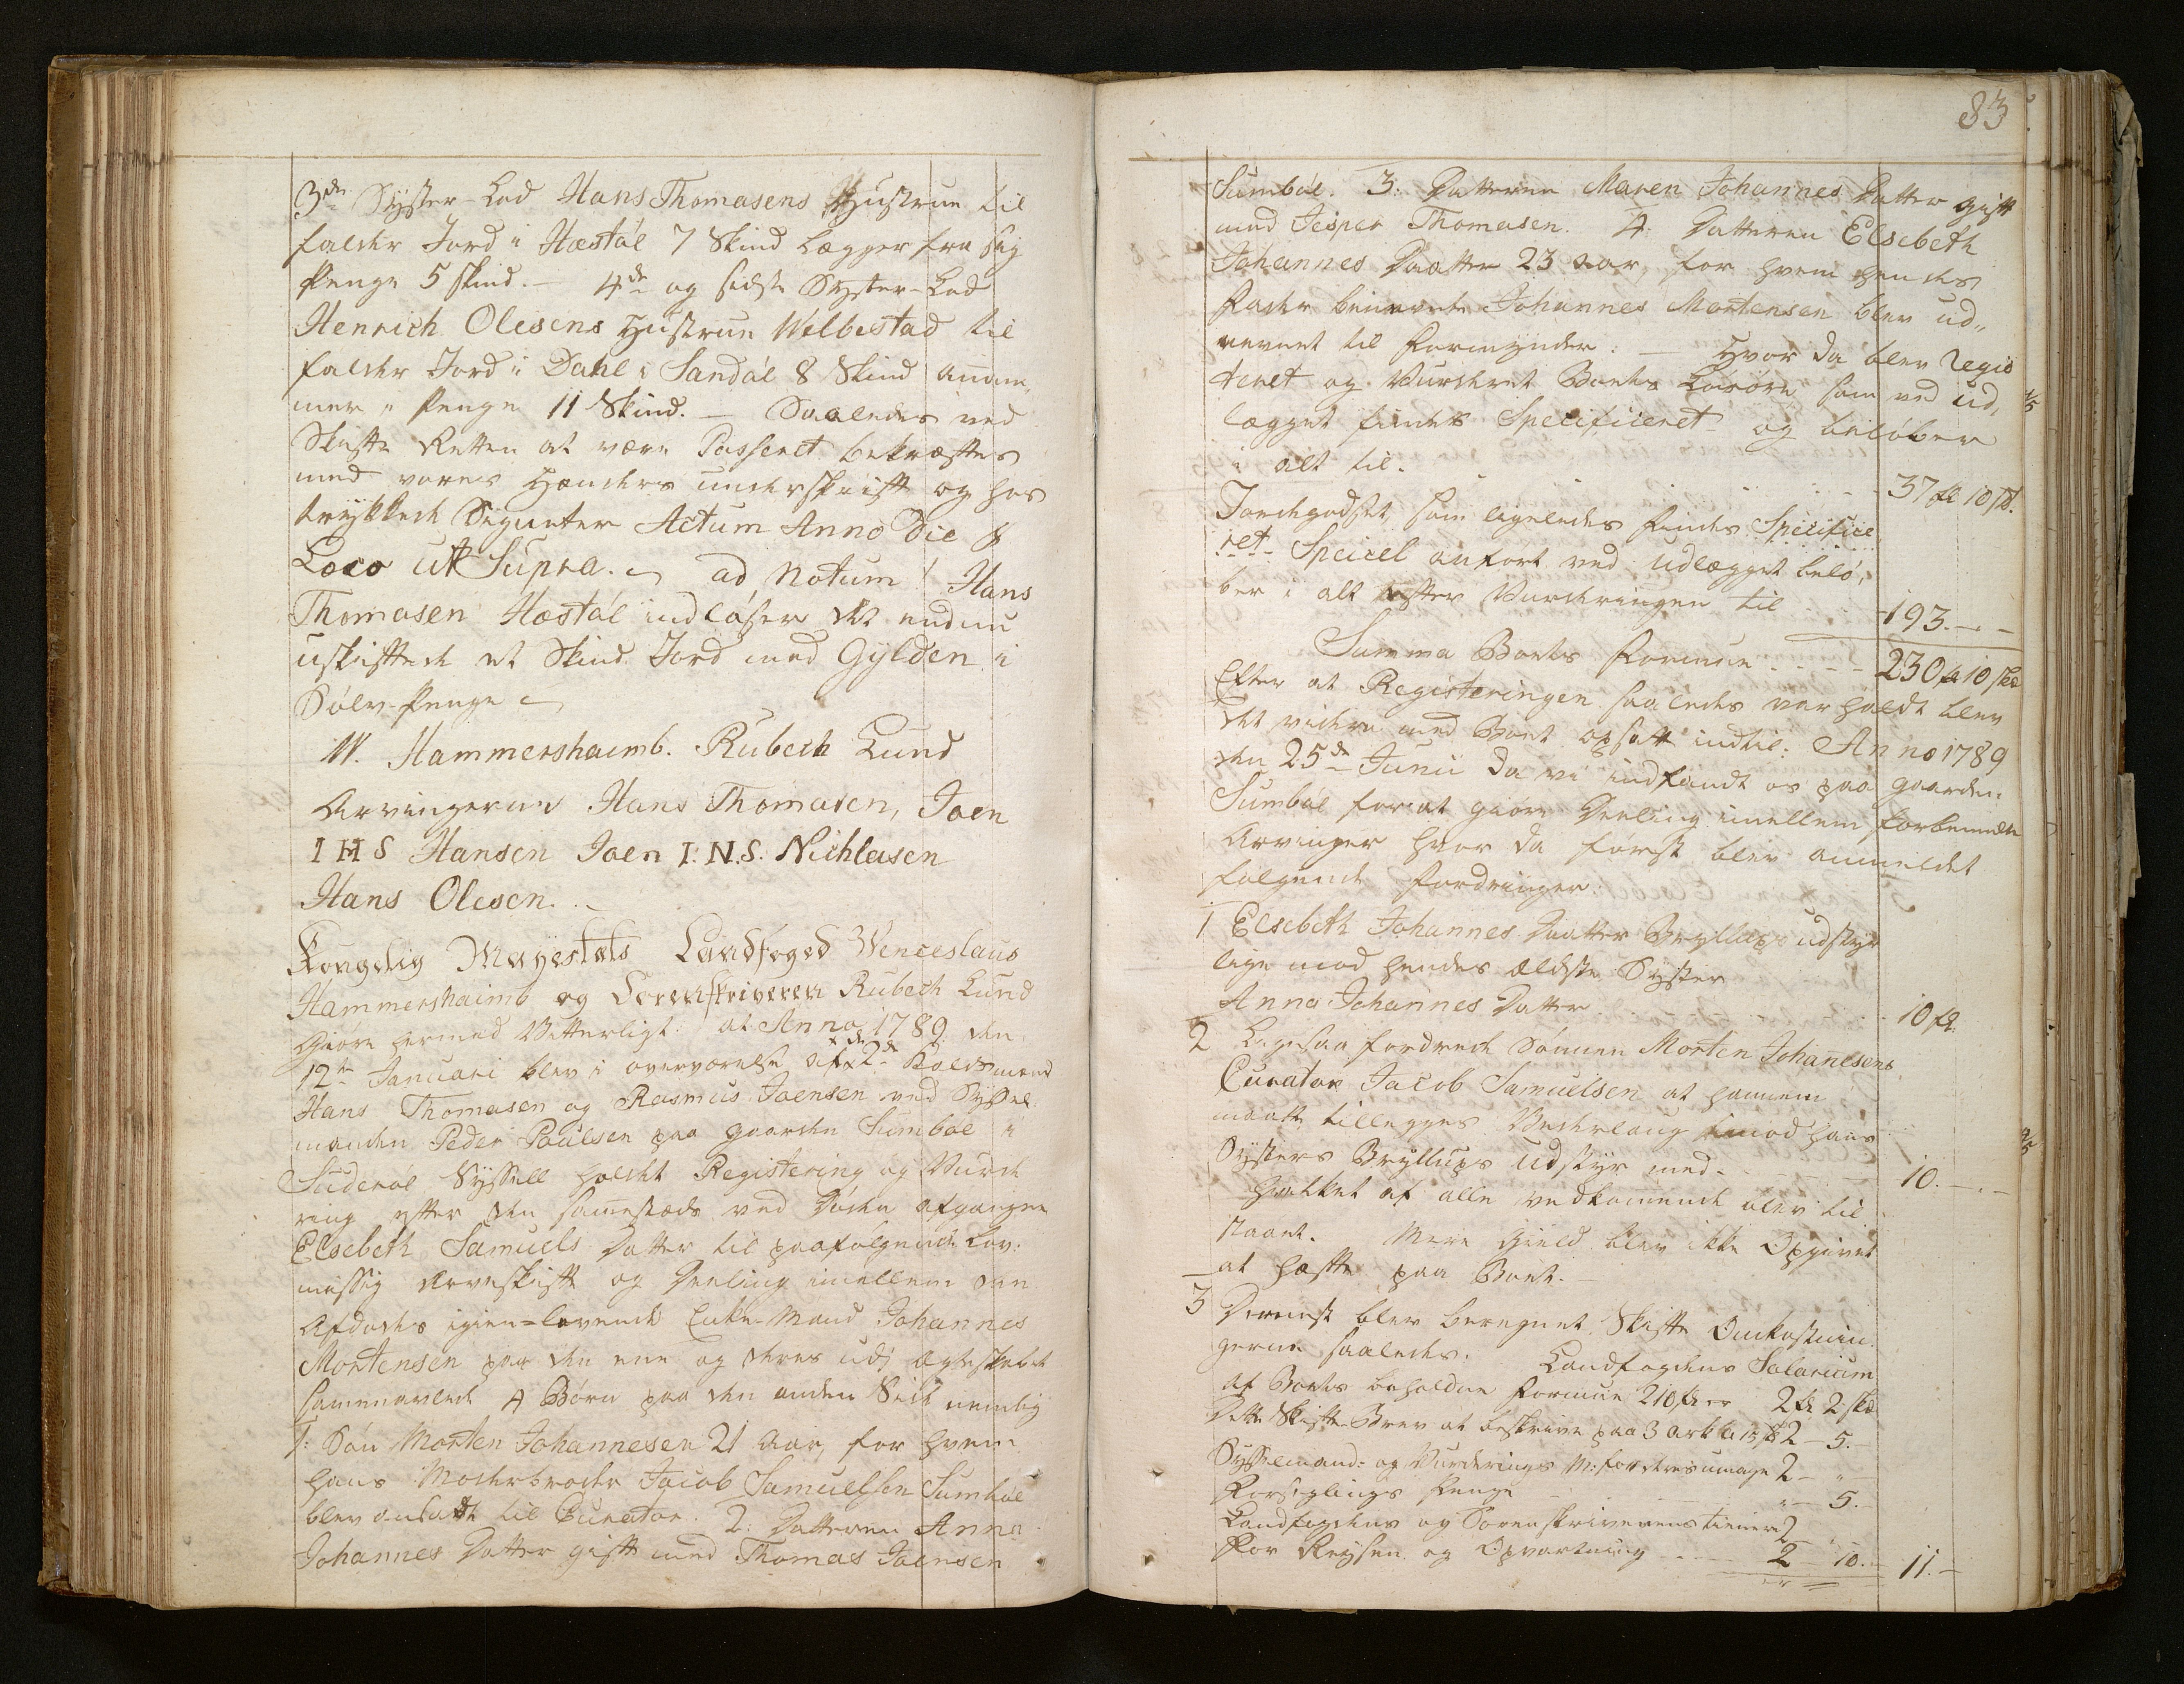 3de Syster-Lod Hans Thomasens Hustrue til
falder Jord i Hæstøl 7 Skind lægger fra sig
Penge 5 skind. — 4de og sidste Syster-Lod
Henrich Olesens Hustrue Welbestad til
falder Jord i Dahl i Sandøe 8 Skind annam„
mer i Penge 11 Skind. — Saaledes ved
Skifte Retten at være Passeret bekræftes
med vores Hænders underskrift og hos
trykkede Signeter Actum Anno Die &
Loco ut Supra. ad Notum! Hans
Thomasen Hæstøl indløser det endnu
uskiftede et Skind Jord med Gylden i
Sølv-Penge
W. Hammershaimb. Rubech Lund
Arvingerne Hans Thomasen, Joen
I H S Hansen Joen I. N. S. Nichlasen
Hans Olesen. . —
Kongelig Mayestæts Landfoged Wenceslaus
Hammershaimb og Sorenskriveren Rubech Lund
Giøre hermed Vitterligt: at Anno 1789 den
12te Januari blev i overværelse af de 2de Holdsmænd
Hans Thomasen og Rasmus Joensen ved Syssel
manden Peder Poulsen paa gaarden Sumbøe i
Suderøe Syssell holdet Registering og Vurde
ring efter den sammestæds ved Døden afgangne
Elsebeth Samuels Datter til paafølgende Lov:
mæssig Arveskifte og Deeling imellem den
Afdødes igien=levende Enke-Mand Johannes
Mortensen paa den ene og deres udi Ægteskabet
sammenavlede 4 Børn paa den anden Side nemlig
1: Søn Morten Johannesen 21 Aar, for hvem
hans Moderbroder Jacob Samuelsen Sumbøe
blev ansatt til Curator. 2: Datteren Anna
Johannes Datter gift med Thomas Joensen
83
Sumbøe. 3: Datteren Maren Johannes Datter gift
med Jesper Thomasen. 4: Datteren Elsebeth
Johannes Daatter 23 aar, for hvem hendes
Fader benævnte Johannes Mortensen blev ud„
nevnet til Formynder: — Hvor da blev Regis
teret og Vurderet Boets Løsøre som ved Ud„
lægget findes Specificeret og beløber
i alt til. 37 fl 10 sk.
Jordegodset som ligeledes findes Specifice
ret Speciel anført ved Udlægget belø„
ber i alt efter Vurderingen til 193. — —
Summa Boets Formue 230 fl 10 sk
Efter at Registeringen saaledes var holdt blev
det videre med Boet opsatt indtil: Anno 1789
den 25de Junii da vi indfandt os paa gaarden
Sumbøe for at giøre Deeling imellem forbemelte
Arvinger hvor da først blev anmeldet
følgende fordringer:
1 Elsebeth Johannes Daatter Bryllups udstyr
lige mod hendes ældste Syster
Anna Johannes Datter 10 fl.
2 Ligesaa fordrede Sønnen Morten Johanesens
Curator Jacob Samuelsen at hannem
maatte tillegges Vederlaug imod hans
Systers Bryllups Udstyr med 10. — . —
hvilket af alle vedkommende blev til
staaet. Mere Gield blev ikke Opgivet
at hæfte paa Boet.
3 Dernest blev beregnet Skifte Omkostnin
gerne saaledes. Landfogdens Salarium
af Boets beholdne Formue 210 fl er 2 fl 2 sk
Dette Skifte-Brev at beskrive paa 3 ark a 15 sk 2 — 5. —
Sysselmand- og Vurderings M: for deres umage 2 — „ —
Forseglings Penge „ — 5. —
Landfogdens og Sorenskriverens tienere 2
For Reysen og Opvartning 2 — 10. — 11. —